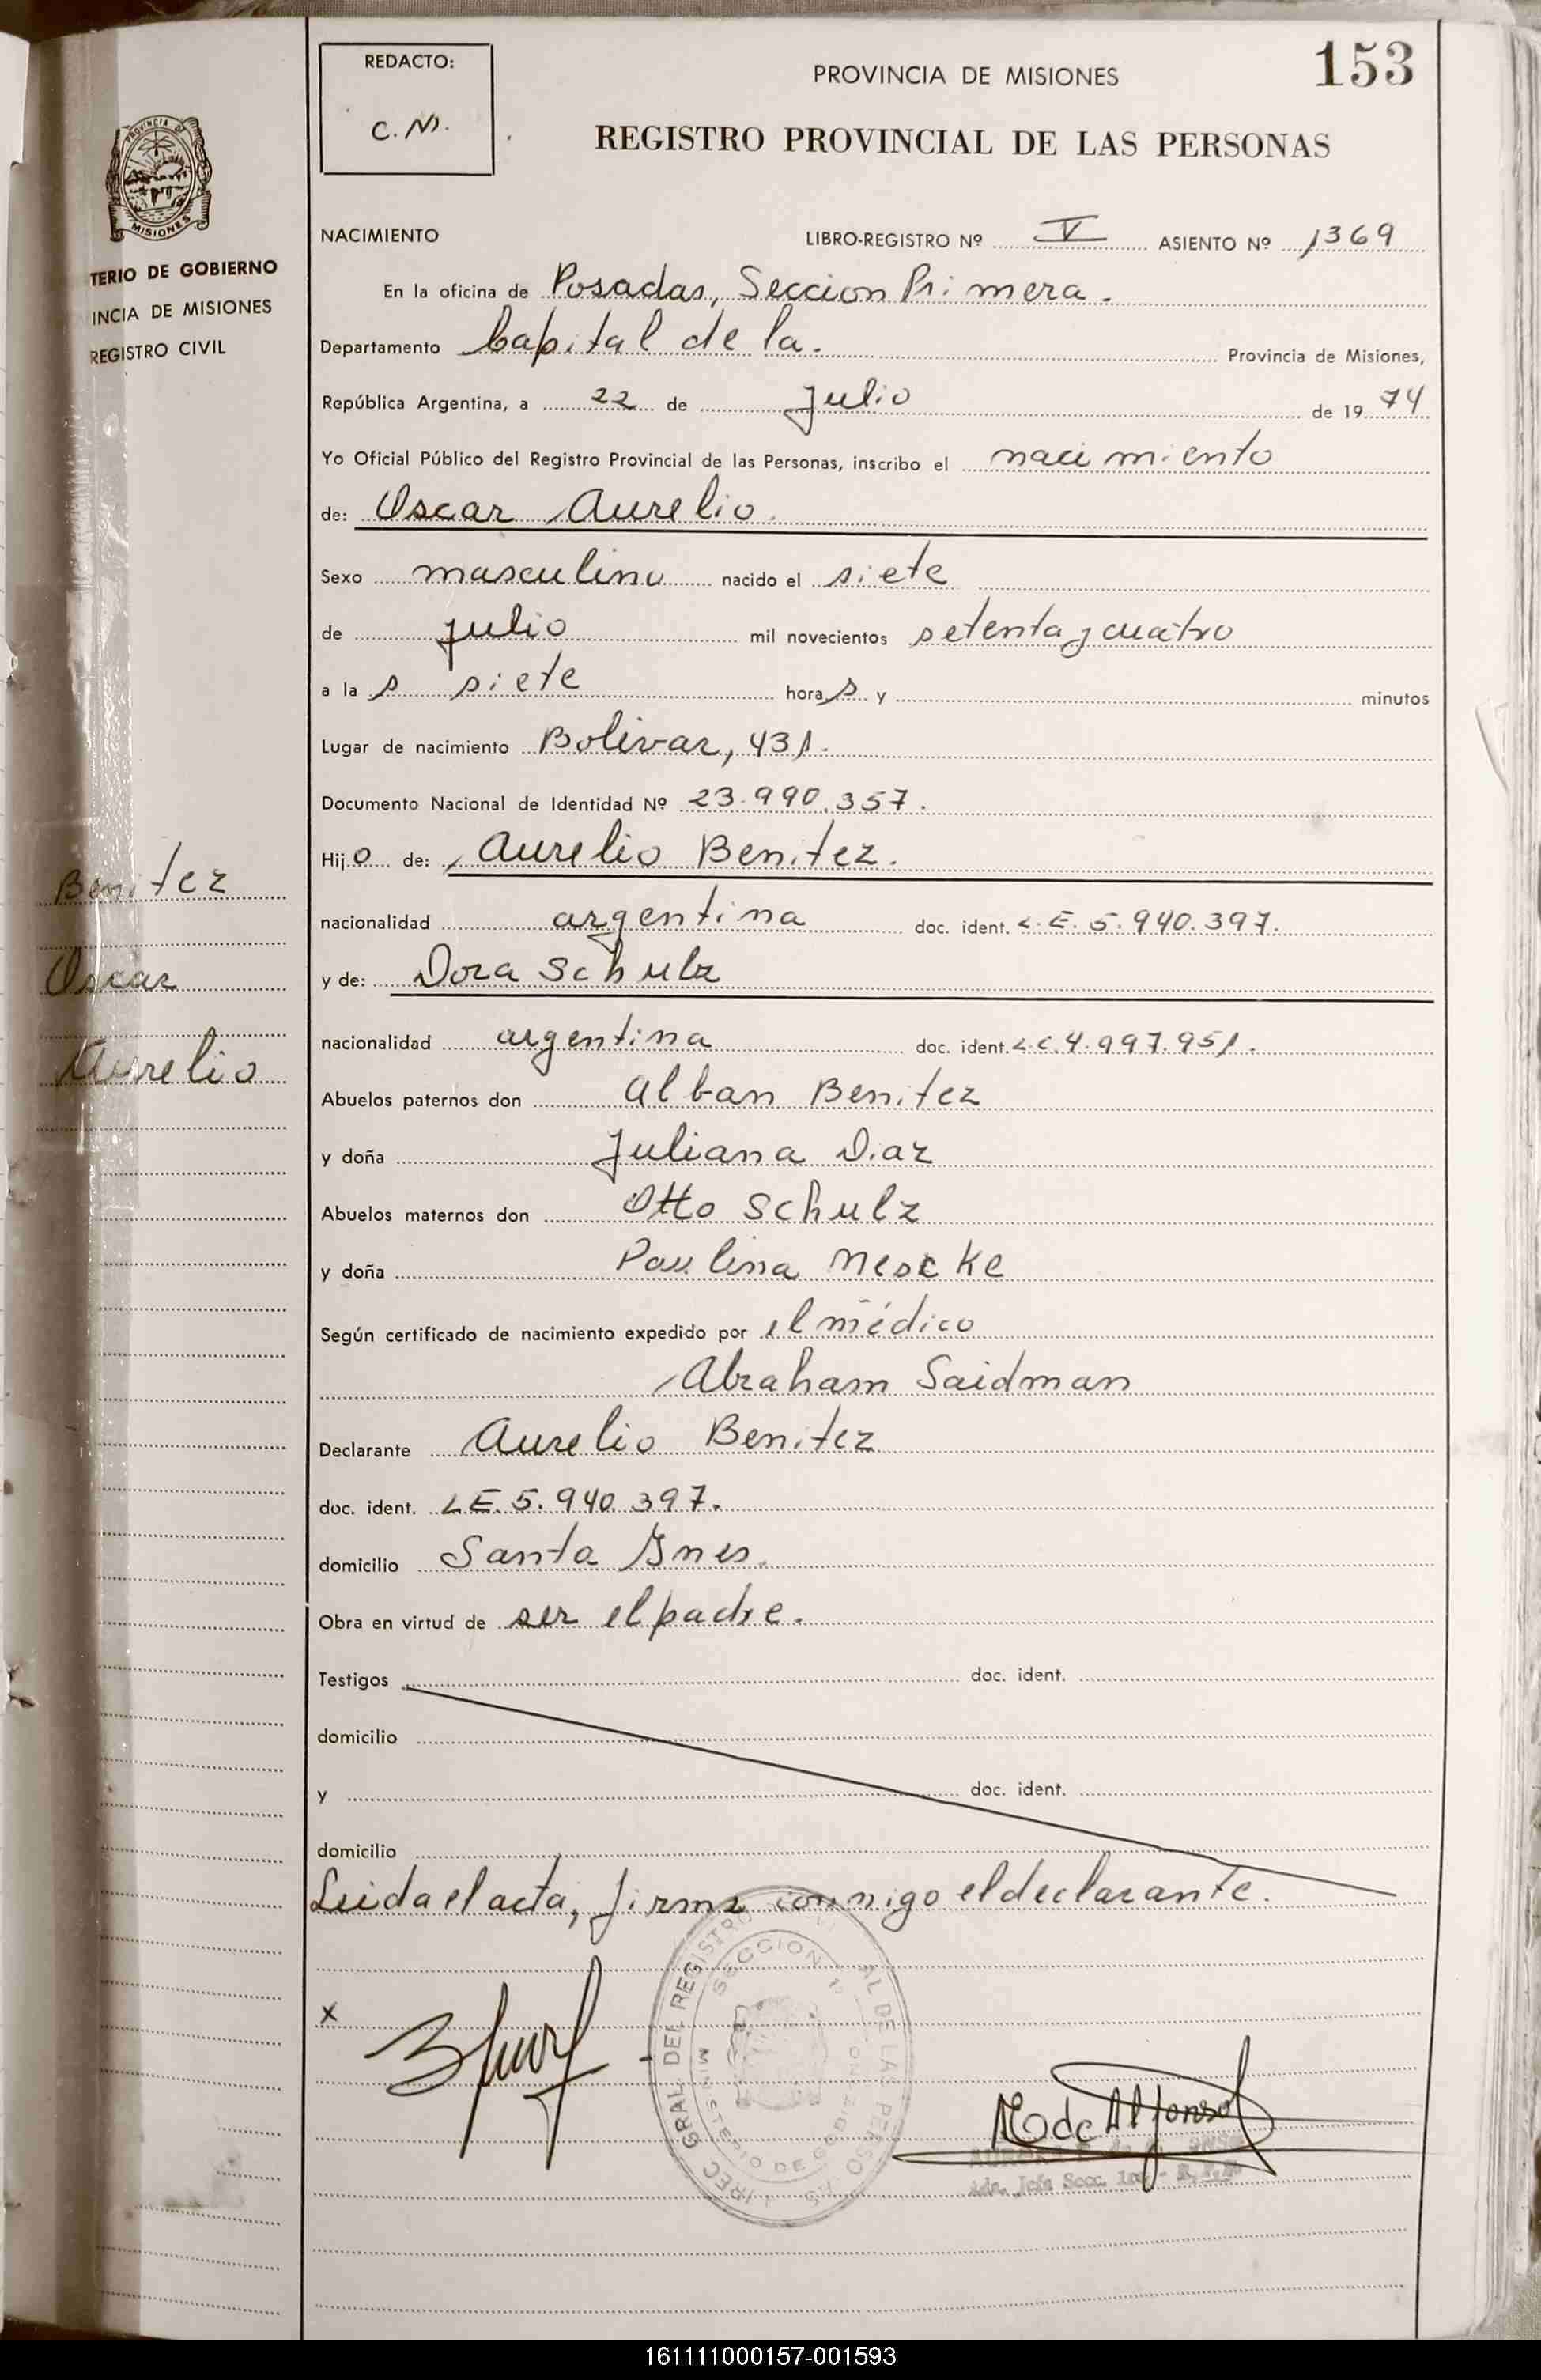 153
REDACTO:
C. M.
PROVINCIA DE MISIONES
REGISTRO PROVINCIAL DE LAS PERSONAS
PROVINCIA DE MISIONES
TERIO DE GOBIERNO
INCIA DE MISIONES
REGISTRO CIVIL
NACIMIENTO LIBRO-REGISTRO Nº V ASIENTO Nº 1369
En la oficina de Posadas, Seccion Primera.
Departamento Capital de la. Provincia de Misiones,
República Argentina, a 22 de Julio de 19 74
Yo Oficial Público del Registro Provincial de las Personas, inscribo el nacimiento
de: Oscar Aurelio.
Sexo masculino nacido el siete
de julio mil novecientos setenta y cuatro
a la s siete hora s y minutos
Lugar de nacimiento Bolivar, 431.
Documento Nacional de Identidad Nº 23.990.357.
Hijo de: Aurelio Benitez.
nacionalidad argentina doc. ident. L.E. 5.940.397.
y de: Dora Schulz
nacionalidad argentina doc. ident. L.C. 4.997.951.
Abuelos paternos don Alban Benitez
y doña Juliana Diaz
Abuelos maternos don Otto Schulz
y doña Paulina Mescke
Según certificado de nacimiento expedido por el médico
Abraham Saidman
Declarante Aurelio Benitez
doc. ident. L.E. 5.940.397.
domicilio Santa Ines.
Obra en virtud de ser el padre.
Testigos doc. ident.
domicilio
y doc. ident.
domicilio
Leida el acta, firma conmigo el declarante.
x
Benitez
Oscar
Aurelio
SECCION 1ª
MINISTERIO DE GOBIERNO
161111000157-001593